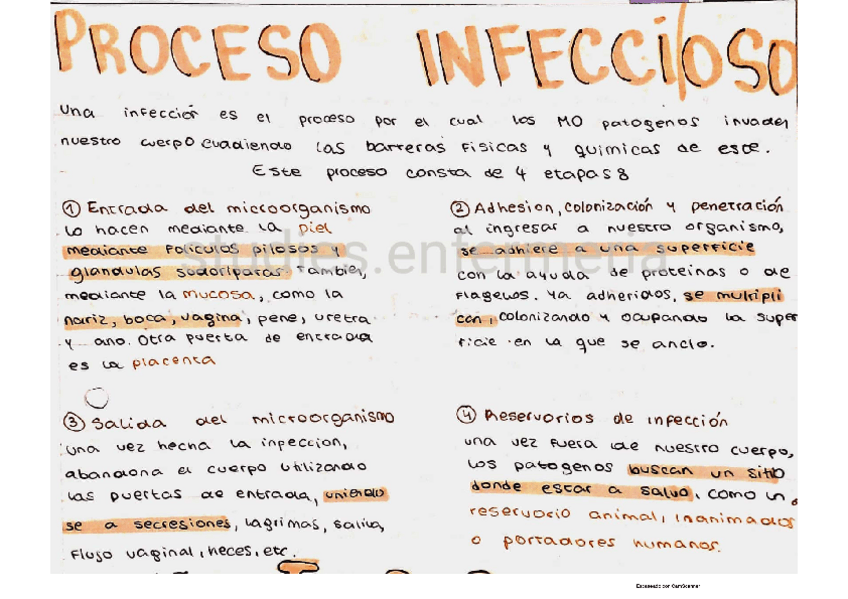 PROCESO INFECCIOSO
una infección es el proceso por el cual los MO patogenos invaden
nuestro cuerpo evadiendo las barreras fisicas y quimicas de este.
Este proceso consta de 4 etapas:
① Entrada del microorganismo
lo hacen mediante la piel
mediante foliculos pilosos y
glandulas sudoriparas. Tambien,
mediante la mucosa, como la
nariz, boca, vagina, pene, uretra
y ano. Otra puerta de entrada
es la placenta
② Adhesion, colonización y penetración
al ingresar a nuestro organismo,
se adhiere a una superficie
con la ayuda de proteinas o de
flagelos. Ya adheridos, se multipli
can, colonizando y ocupando la super
ficie en la que se anclo.
③ Salida del microorganismo
una vez hecha la infeccion,
abandona el cuerpo utilizando
las puertas de entrada, uniendo
se a secresiones, lagrimas, saliva,
flujo vaginal, heces, etc.
④ Reservorios de infección
una vez fuera de nuestro cuerpo,
los patogenos buscan un sitio
donde estar a salvo, como un
reservorio animal, inanimados
o portadores humanos.
studies.enfermeria
Escaneado con CamScanner